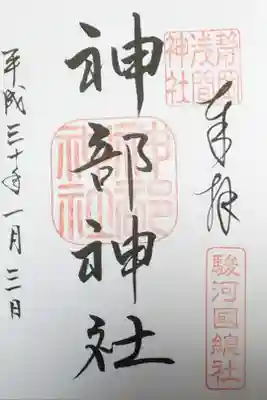 静岡
浅間
神社
奉拝
駿河国総社
神部神社
平成三十年一月三日